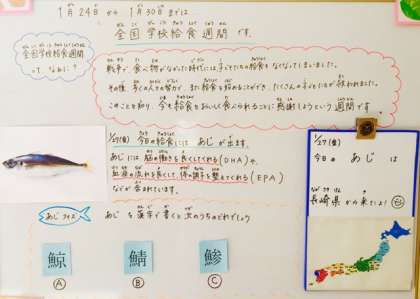 1月24日から 1月30日までは
全国学校給食週間です。
全国学校給食週間
って なぁに?
戦争で食べ物がなかった時代には、子どもたちの給食もなくなってしまいました。
その後、多くの人々の努力が、また給食を始めることができ、たくさんの子どもたちが救われました。
このことを知り、今も給食をおいしく食べられることに感謝しようという週間です
1/27(金)
今日の給食には あじ が出ます。
あじには 脳の働きを良くしてくれる(DHA)や、
血液の流れを良くして、体の調子を整えてくれる(EPA)
などが含まれています。
あじクイズ
あじ を漢字で書くと次のうちのどれでしょう
鯨
鯖
鯵
A
B
C
1/27(金)
今日の あじ は
長崎県から来たよ!